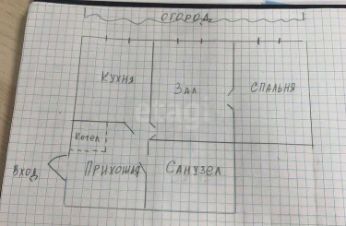 ОГОРОД
КУХНЯ
ЗАЛ
СПАЛЬНЯ
Котел
ВХОД
ПРИХОЖАЯ
САНУЗЕЛ